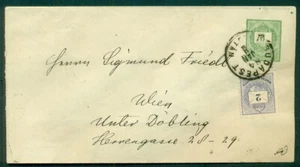 Herrn Sigmund Friedl
Wien
Unter Döbling
Herrengasse 28-29.
BUDAPEST
2